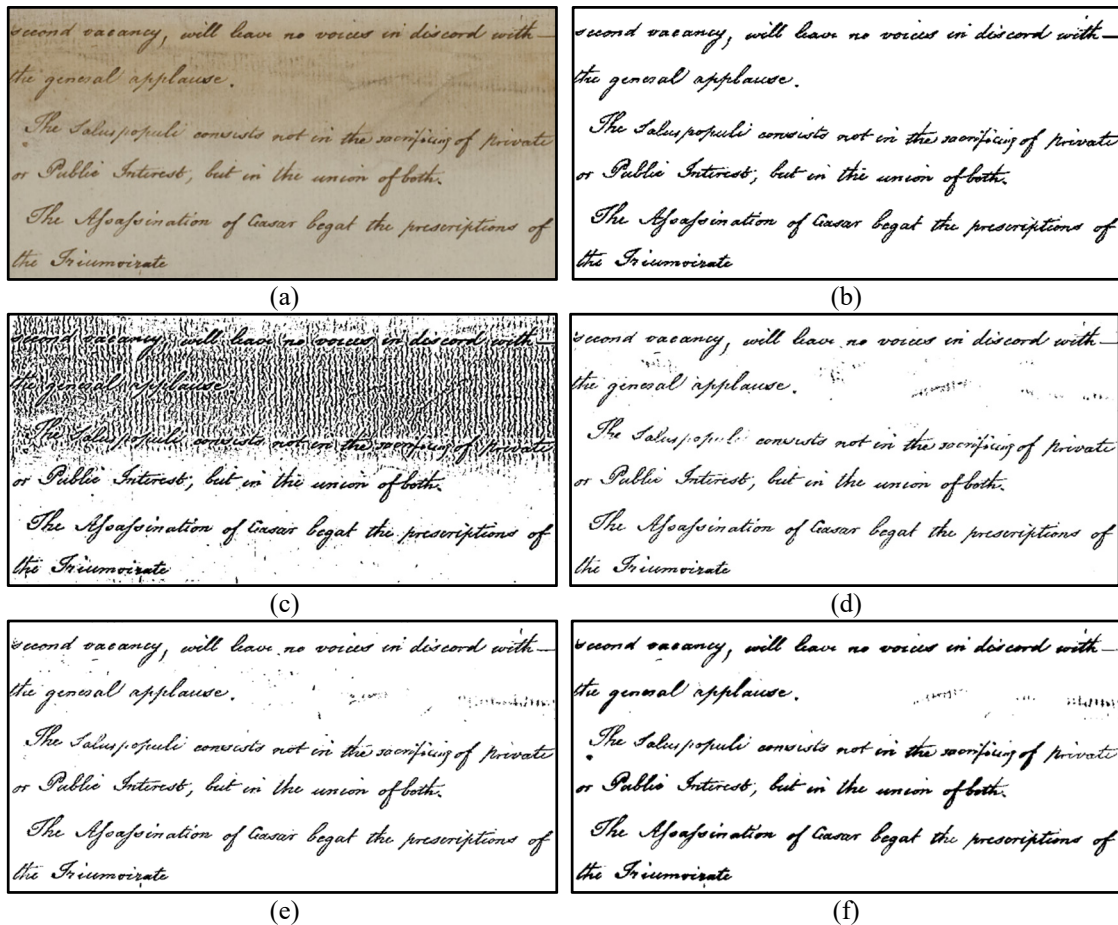 second vacancy, will leave no voices in discord with—
the general applause.
The Salus populi consists not in the sacrificing of private
or Public Interest, but in the union of both.
The Aſsaſsination of Casar begat the prescriptions of
the Triumvirate
(a)
second vacancy, will leave no voices in discord with—
the general applause.
The Salus populi consists not in the sacrificing of private
or Public Interest, but in the union of both.
The Aſsaſsination of Casar begat the prescriptions of
the Triumvirate
(b)
second vacancy, will leave no voices in discord with—
the general applause.
The Salus populi consists not in the sacrificing of private
or Public Interest, but in the union of both.
The Aſsaſsination of Casar begat the prescriptions of
the Triumvirate
(c)
second vacancy, will leave no voices in discord with—
the general applause.
The Salus populi consists not in the sacrificing of private
or Public Interest, but in the union of both.
The Aſsaſsination of Casar begat the prescriptions of
the Triumvirate
(d)
second vacancy, will leave no voices in discord with—
the general applause.
The Salus populi consists not in the sacrificing of private
or Public Interest, but in the union of both.
The Aſsaſsination of Casar begat the prescriptions of
the Triumvirate
(e)
second vacancy, will leave no voices in discord with—
the general applause.
The Salus populi consists not in the sacrificing of private
or Public Interest, but in the union of both.
The Aſsaſsination of Casar begat the prescriptions of
the Triumvirate
(f)